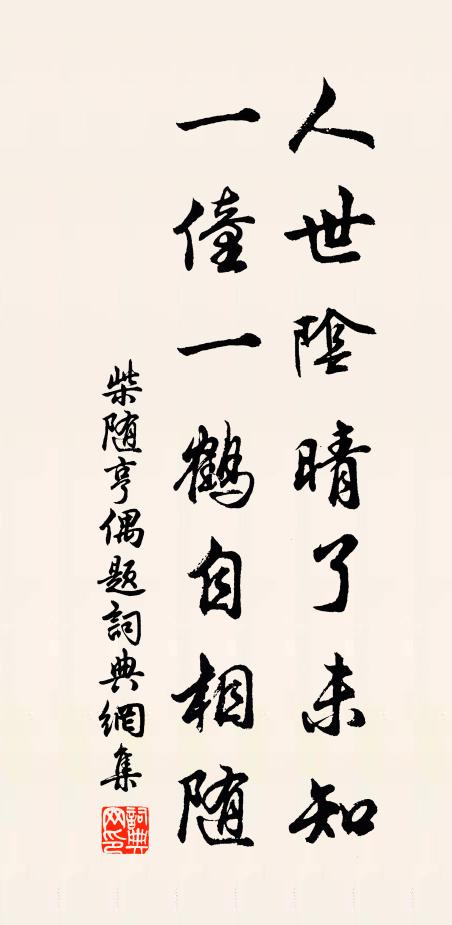 人世陰晴了未知
一僮一鶴自相随
柴随亨偶题詞典網集
詞典網印